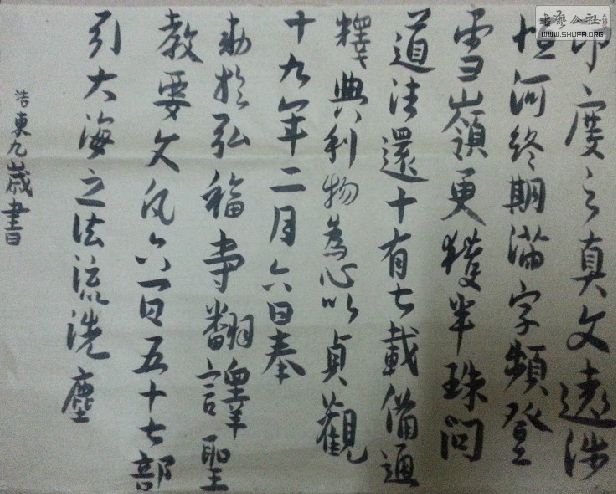 书艺公社
WWW.SHUFA.ORG
印度之真文遠涉
恒河終期滿字頻登
雪嶺更獲半珠問
道往還十有七載備通
釋典利物為心以貞觀
十九年二月六日奉
勅於弘福寺翻譯聖
教要文凡六百五十七部
引大海之法流洗塵
浩東九歲書